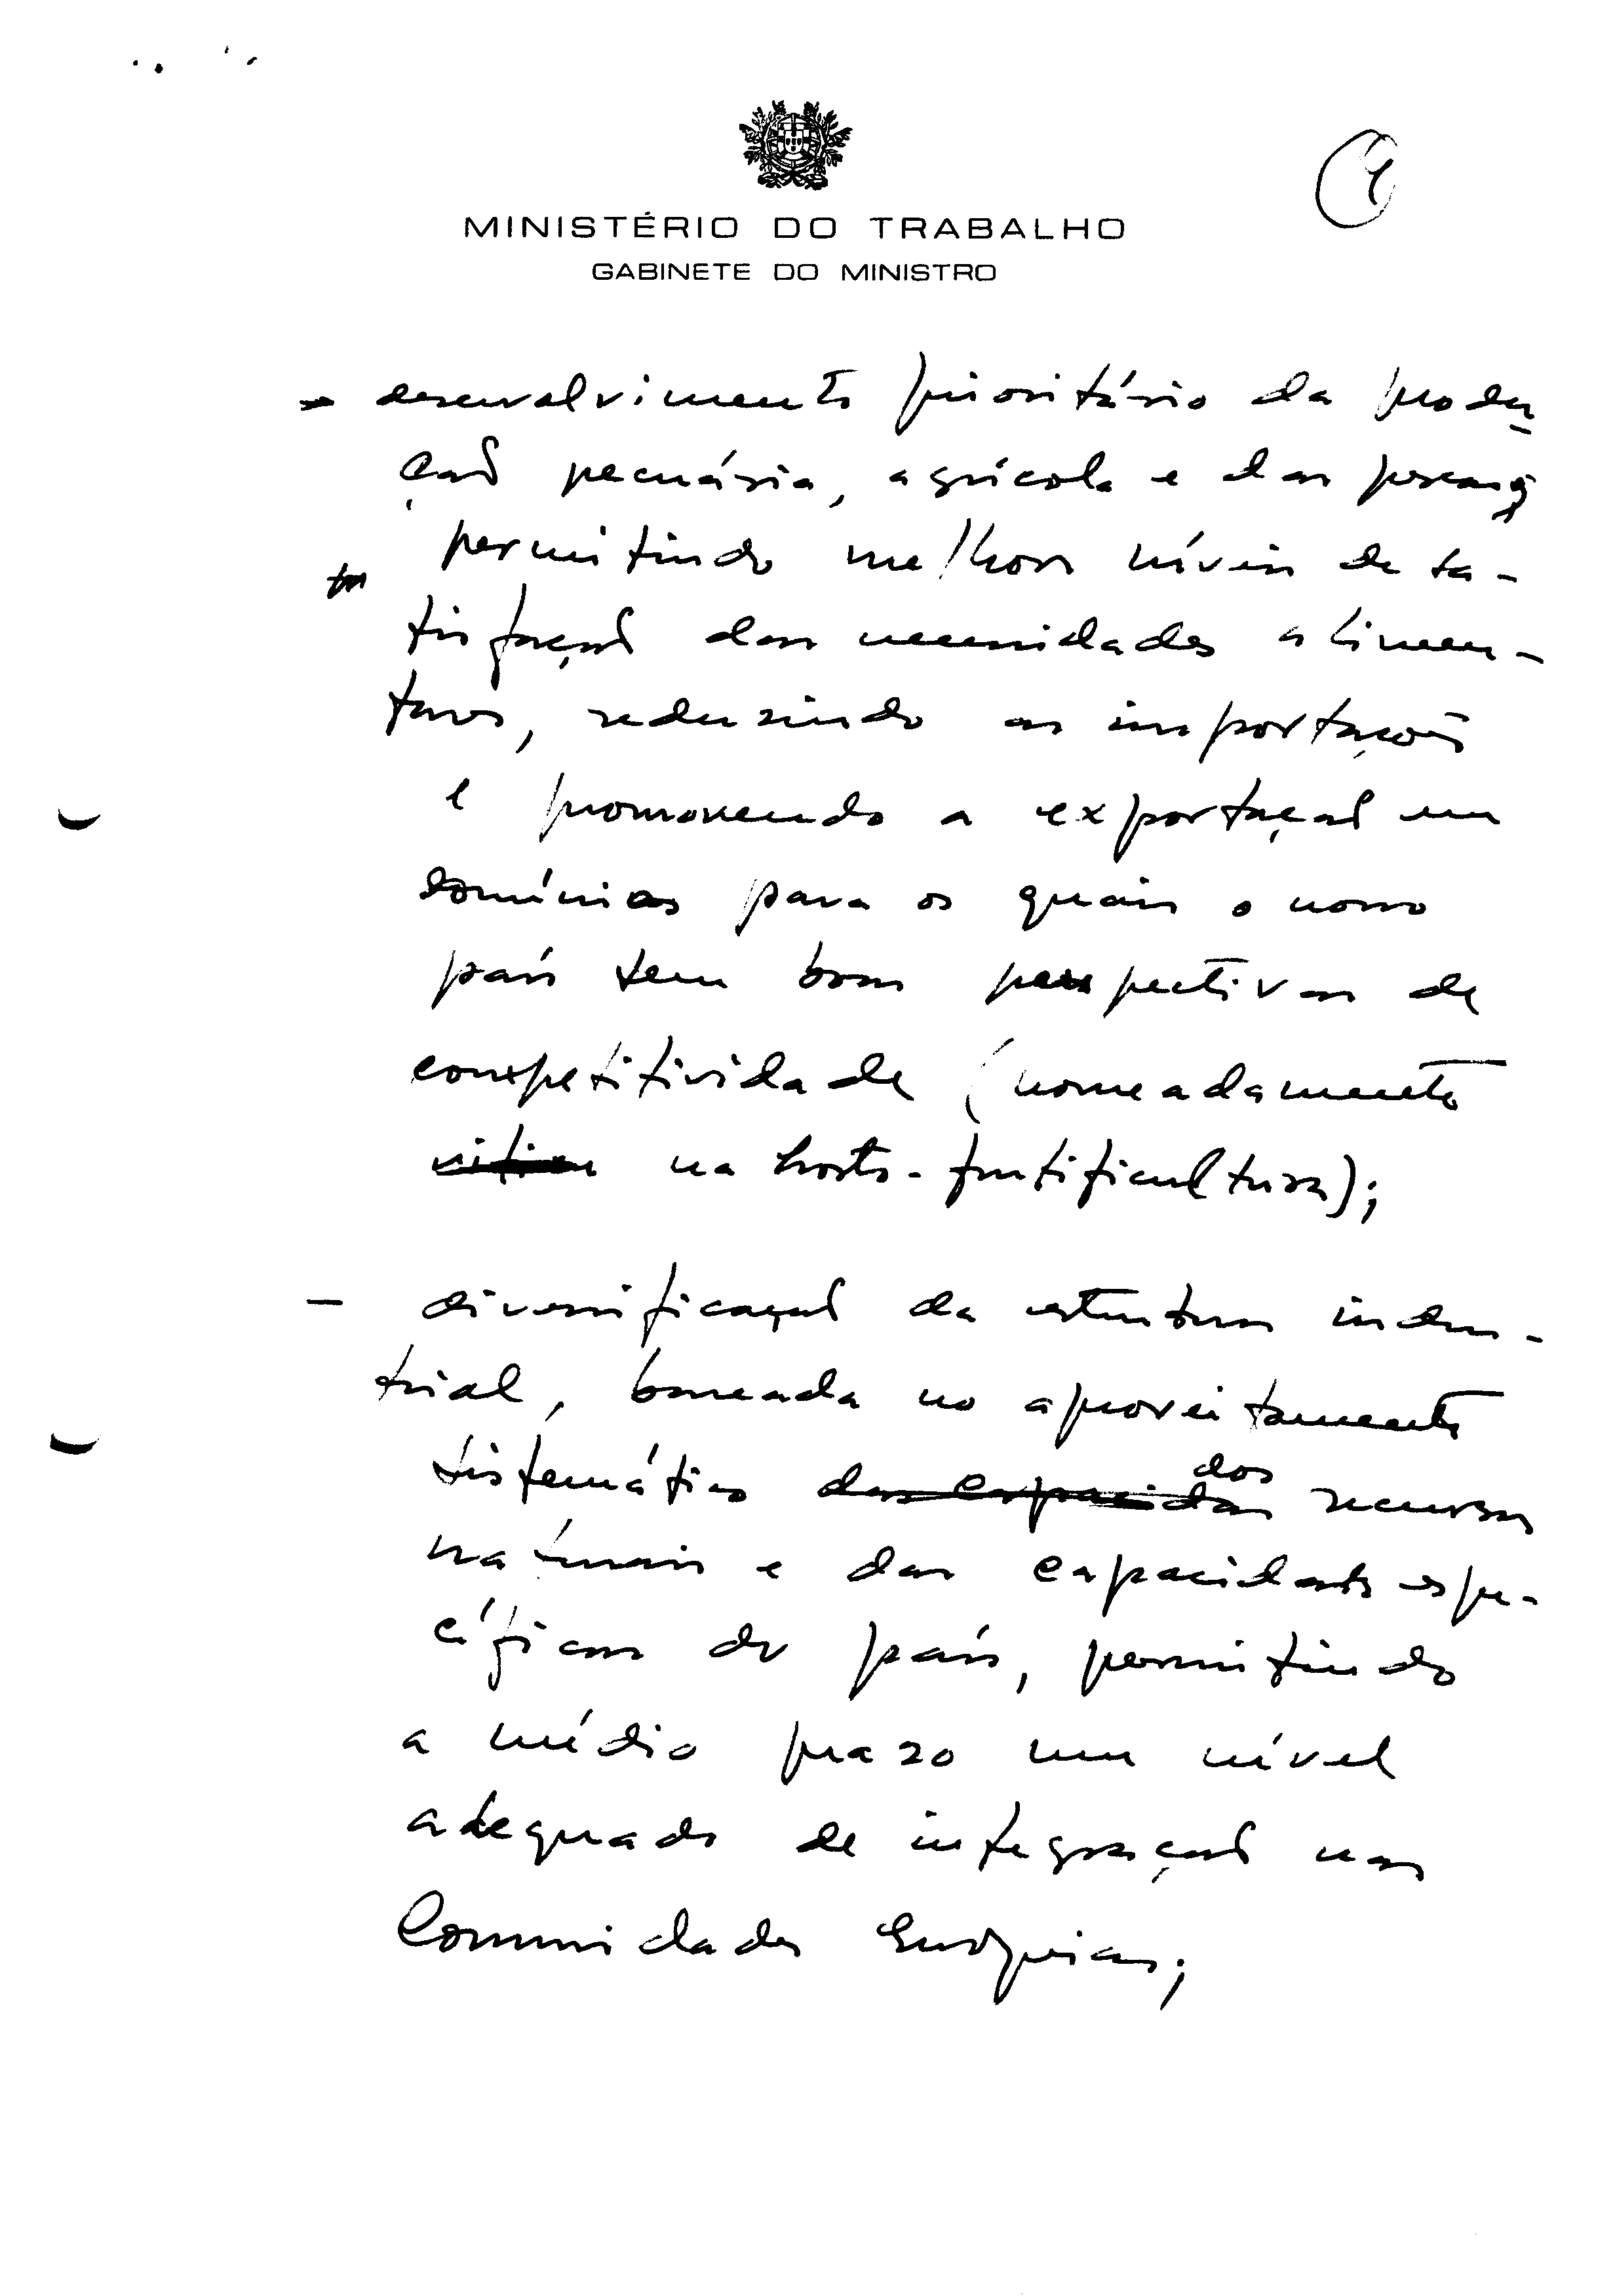 MINISTÉRIO DO TRABALHO
GABINETE DO MINISTRO
- desenvolvimento prioritário da produ-
ção pecuária, agrícola e das pescas,
permitindo melhores níveis de sa-
tisfação das necessidades alimen-
tares, reduzindo as importações
e promovendo a exportação em
domínios para os quais o nosso
país tem boas perspectivas de
competitividade (nomeadamente
na horto-fruticultura);
- diversificação da estrutura indus-
trial, baseada no aproveitamento
sistemático das capacidas dos recursos
naturais e das capacidades espe-
cíficas do país, permitindo
a médio prazo um nível
adequado de integração nas
Comunidades Europeias;